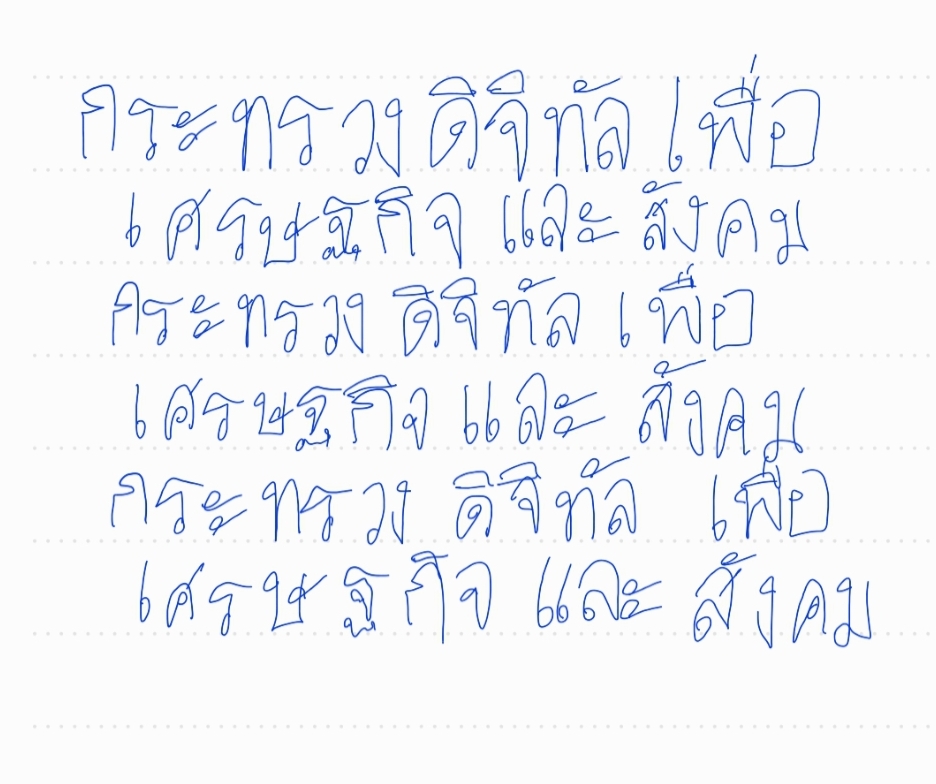 กระทรวงดิจิทัลเพื่อ
เศรษฐกิจและสังคม
กระทรวงดิจิทัลเพื่อ
เศรษฐกิจและสังคม
กระทรวงดิจิทัลเพื่อ
เศรษฐกิจและสังคม